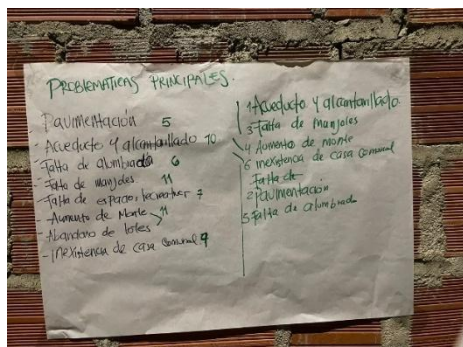 PROBLEMATICAS PRINCIPALES.
Pavimentación 5
- Acueducto y alcantarillado 10
- Falta de alumbrado 6
- Falta de manjoles 11
- Falta de espacios recreativos 7
- Aumento de Monte 11
- Abandono de lotes
- Inexistencia de casa comunal 9
1 Acueducto y alcantarillado
3 Falta de manjoles
4 Aumento de monte
6 inexistencia de casa comunal
Falta de
2 pavimentación
5 Falta de alumbrado